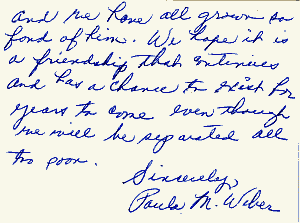 and we have all grown so
fond of him. We hope it is
a friendship that continues
and has a chance to exist for
years to come even though
we will be separated all
too soon.
Sincerely,
Paula M. Weber